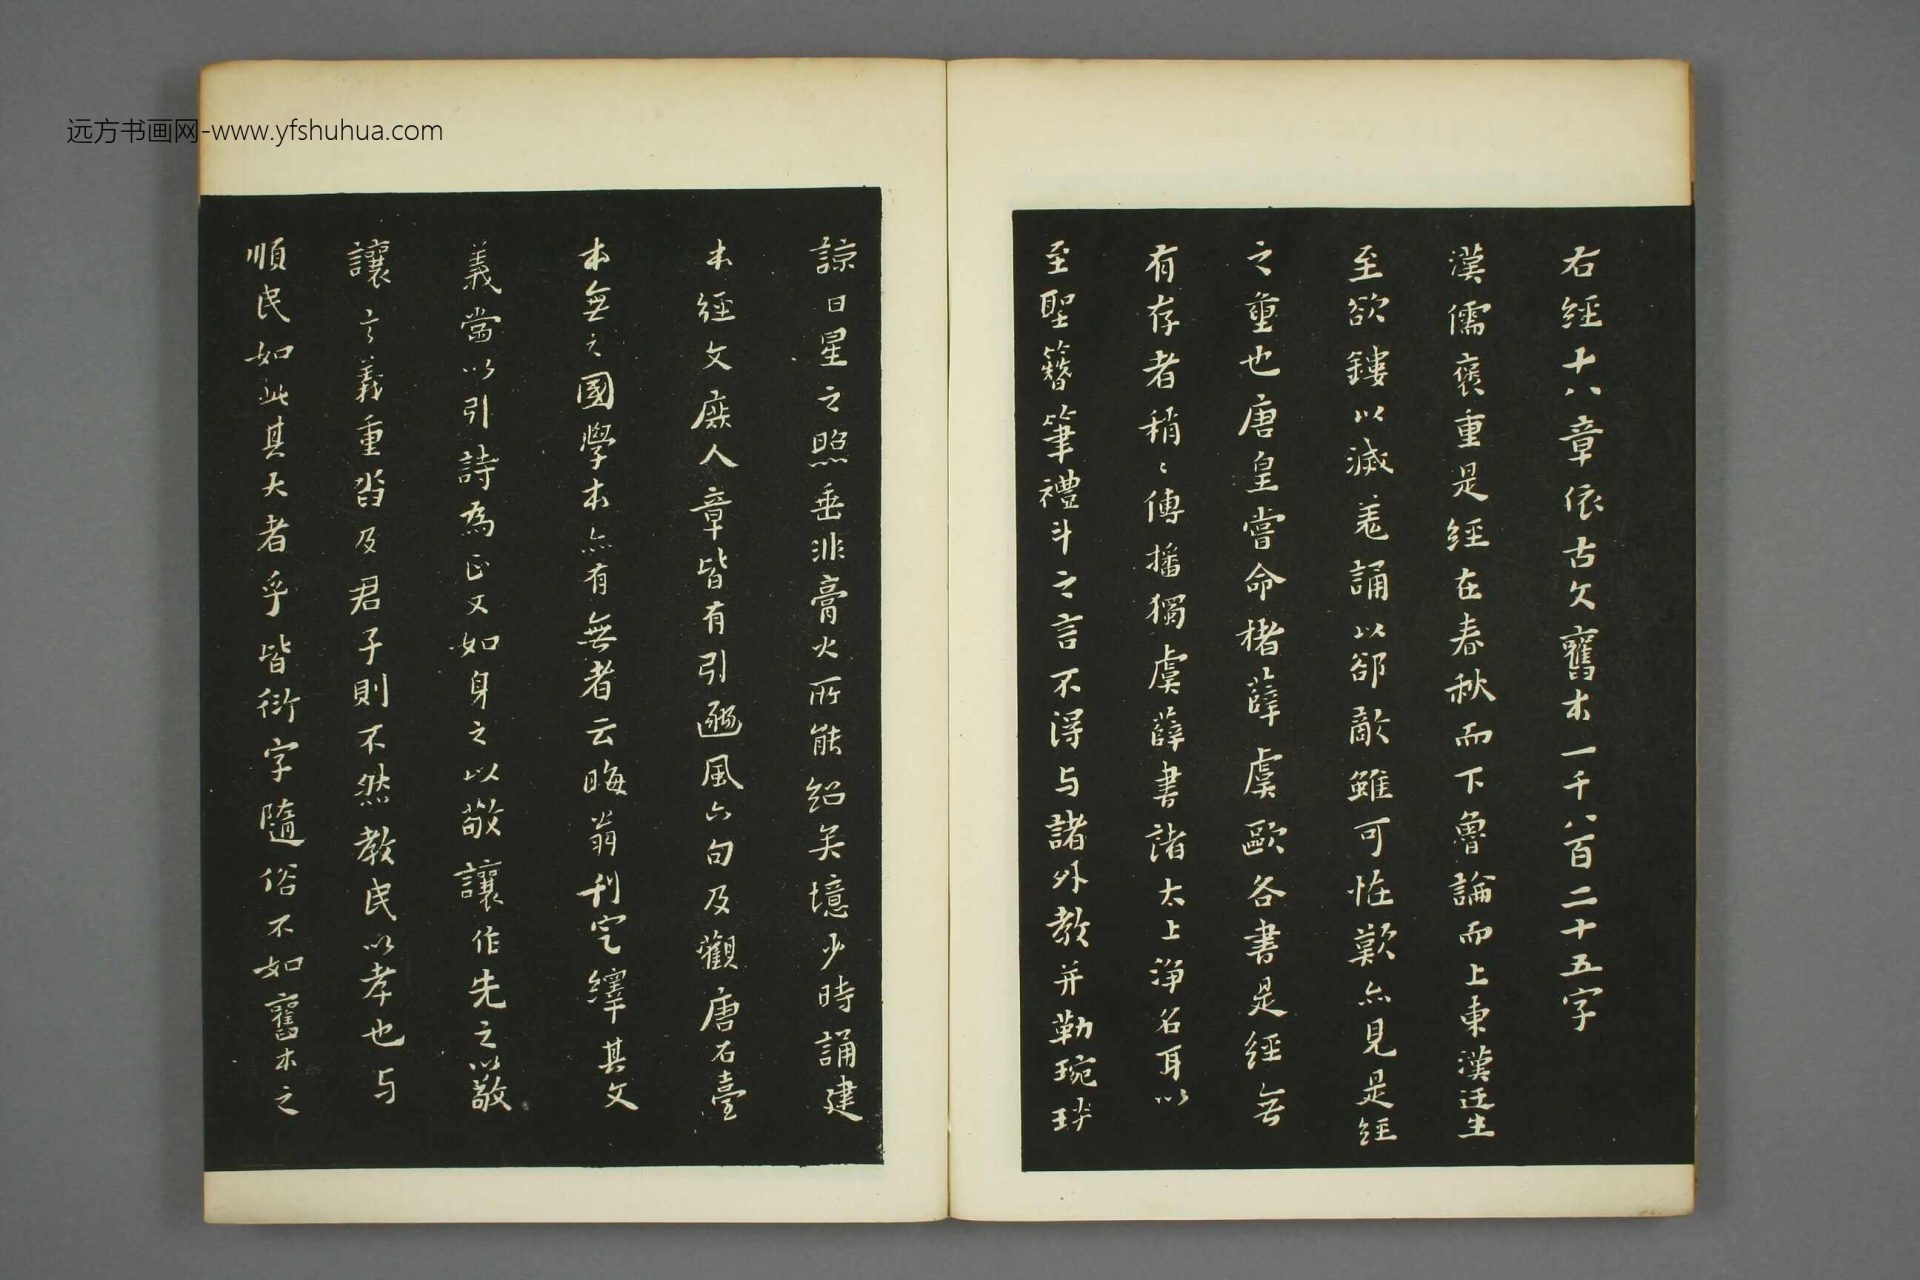 远方书画网-www.yfshuhua.com
右經十八章依古文舊本一千八百二十五字
漢儒褒重是經在春秋而下魯論而上東漢迂生
至欲鏤以滅羌誦以郤敵雖可怪歎亦見是經
之重也唐皇嘗命褚薛虞歐各書是經無
有存者稍〻傳播獨虞薛書諸太上淨名耳以
至聖簪筆禮斗之言不得与諸外教并勒琬琰
諒日星之照垂非膏火所能紹矣憶少時誦建
本經文庶人章皆有引豳風六句及觀唐石臺
本無之國學本亦有無者云晦翁刊定繹其文
義當以引詩為正又如身之以敬讓作先之以敬
讓言義重沓及君子則不然教民以孝也与
順民如此其大者乎皆衍字隨俗不如舊本之